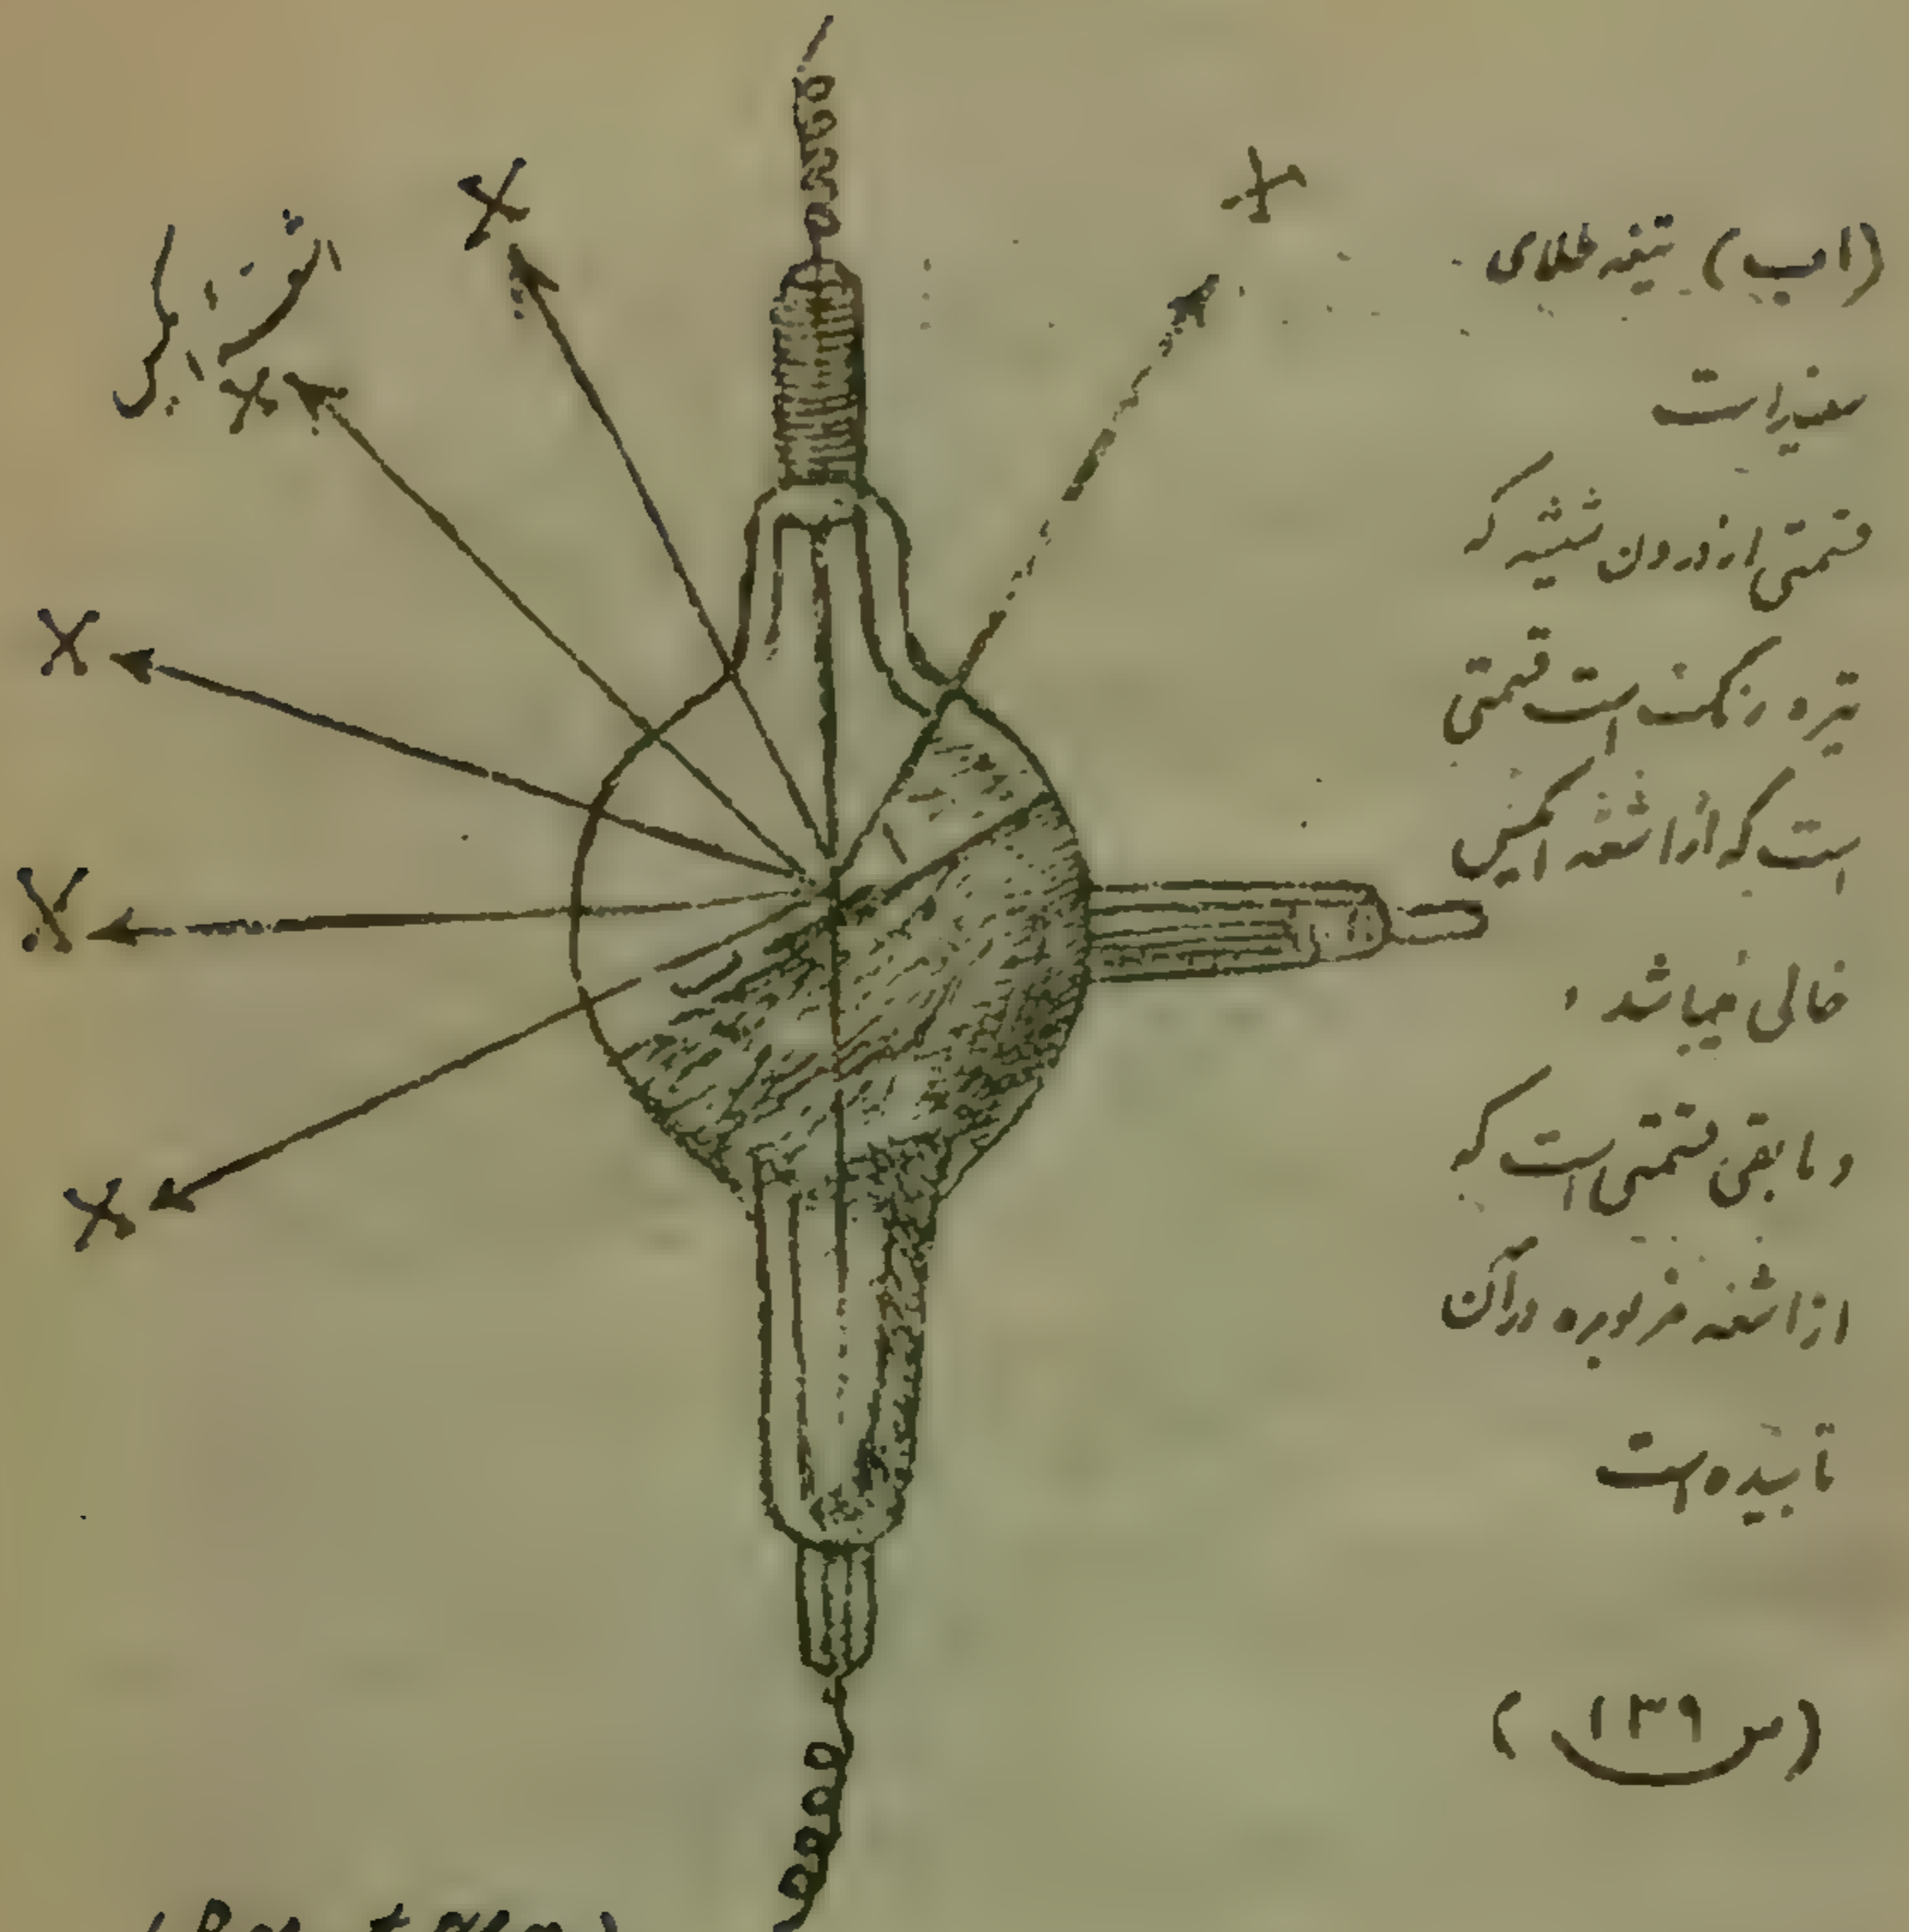 (اب) تیغه طلای
سفید است
قسمتی از درون شیشه که
تیره رنگ است قسمتی
است که از اشعه ایکس
خالی میباشد،
و مابقی قسمتی است که
از اشعه مزبوره در آن
تابیده است
(س ۱۳۹)
X
X
X
X
X
X